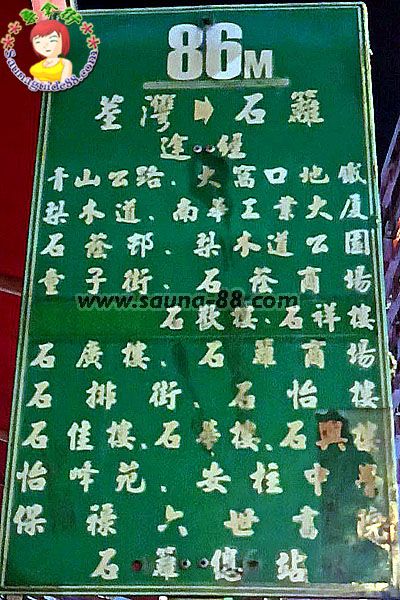 86M
荃灣➡石籬
途:經
青山公路、大窩口地鐵
梨木道、南華工業大廈
石蔭邨、梨木道公園
童子街、石蔭商場
www.sauna-88.com
石歡樓、石祥樓
石廣樓、石籬商場
石排街、石怡樓
石佳樓、石華樓、石興樓
怡峰苑、安柱中學
保祿六世書院
石籬總站